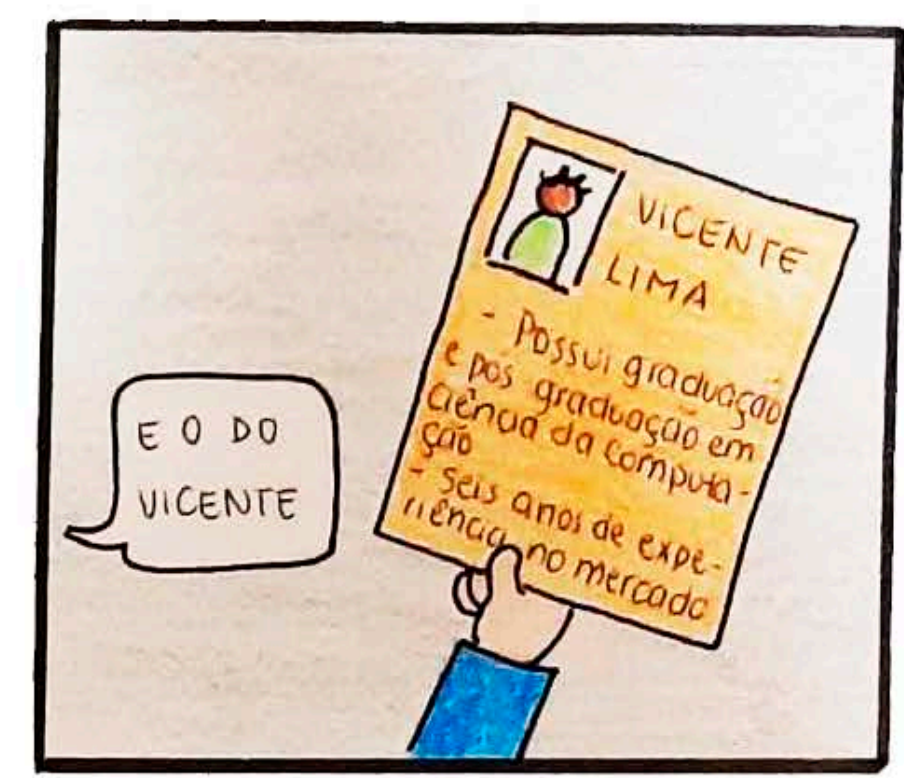 E O DO
VICENTE
VICENTE
LIMA
- Possui graduação
e pós graduação em
Ciência da computa-
ção
- Seis anos de expe-
riência no mercado